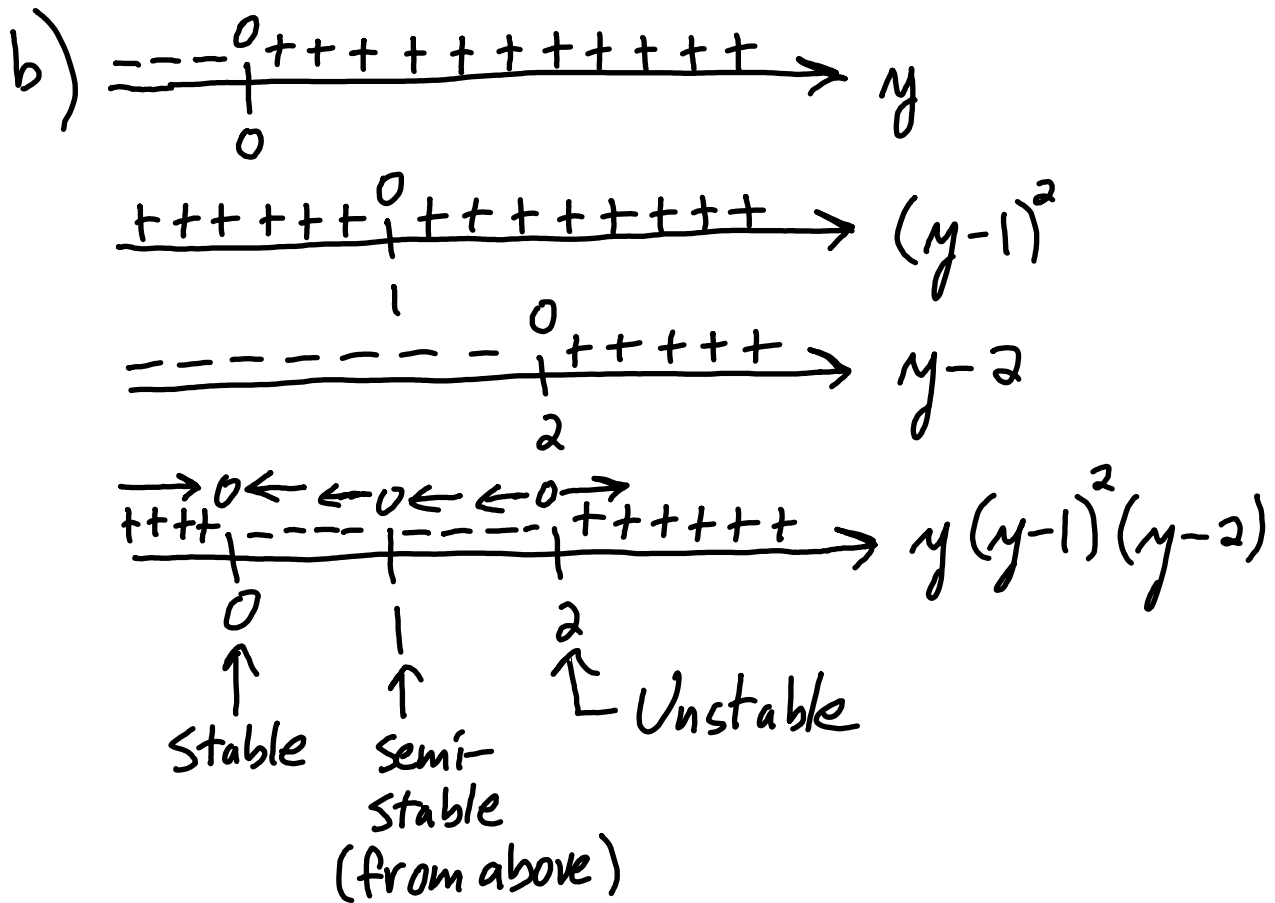 b)
- - - 0 + + + + + + + + + + + y
0
+ + + + + + 0 + + + + + + + + (y-1)²
1
- - - - - - - - 0 + + + + + y-2
2
→ 0 ← ← 0 ← ← 0 →
+ + + + - - - - - - - - + + + + + + y(y-1)²(y-2)
0 1 2
↑ ↑ ↑ Unstable
stable semi-
stable
(from above)